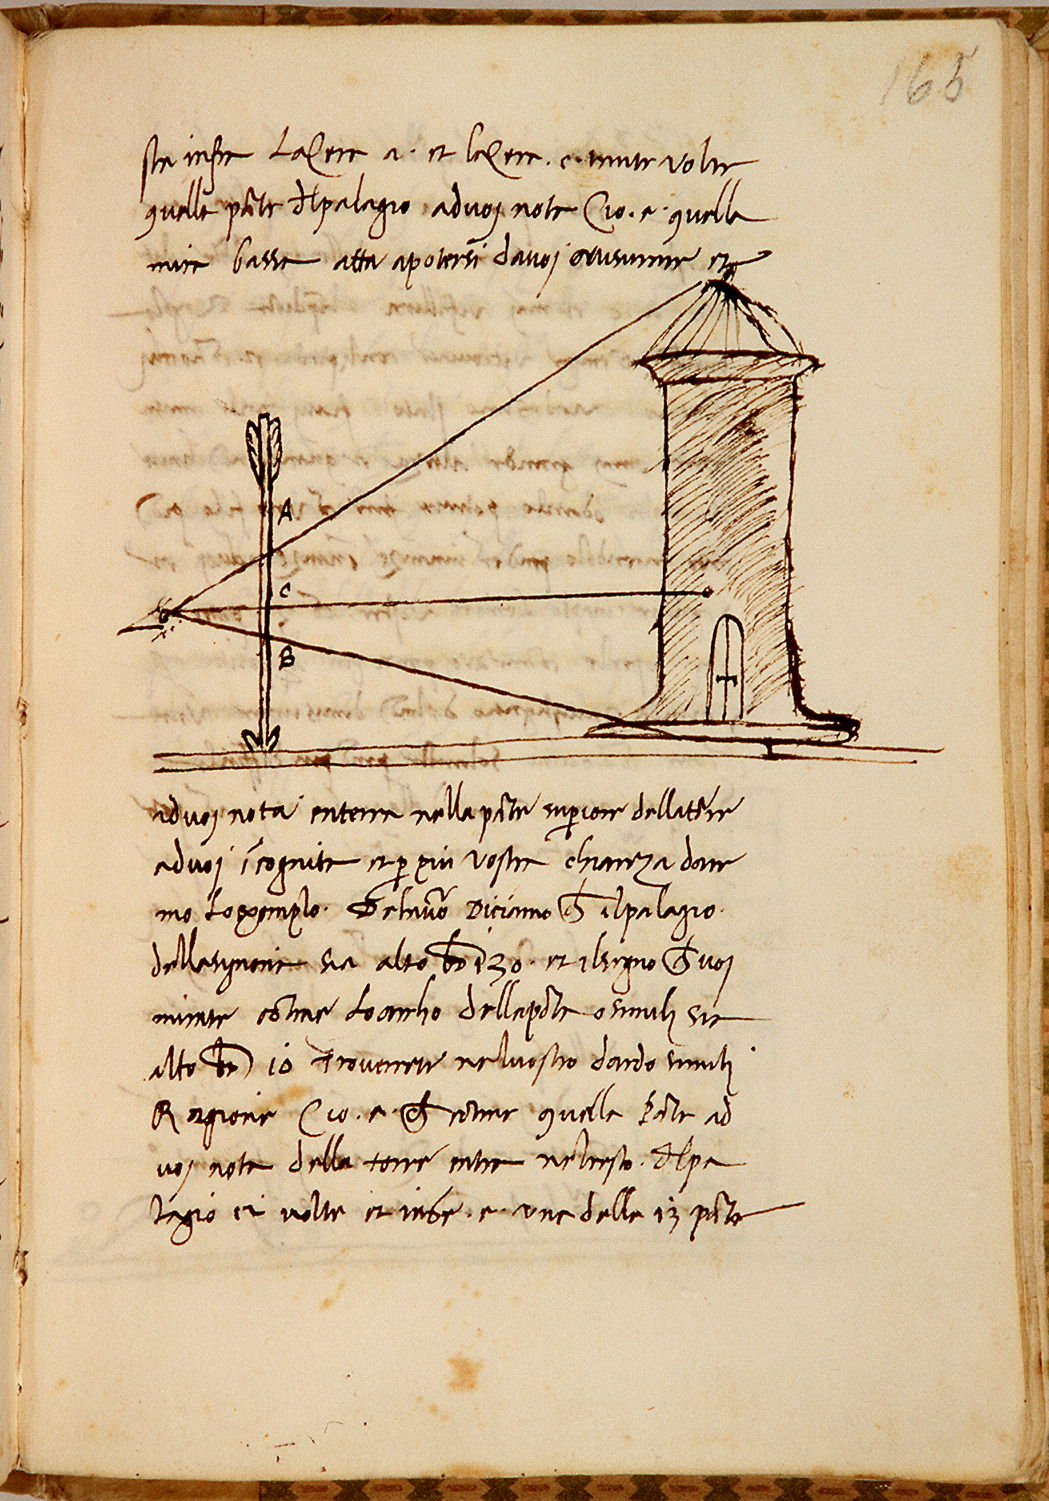 165
sta infra La lettera a. et lettera. c. tante volte
quella parte del palagio ad voi nota Cio. e. quella
mira bassa atta a potersi da voi misurare et
A
C
B
ad voi nota enterra nella parte superiore della torre
ad voi incognita et per piu vostra chiarezza dare
mo Lo exemplo. Diciamo che il palagio
della signoria sia alto br 130. et il segno che voi
mirate Lo archo della porta o simili sia
alto br 10 Troverrete nel vostro dardo simili
Ragione Cio. e. che quella parte ad
voi nota della torre entra nel resto. del pa
lagio volte et. e. una delle 13 parte